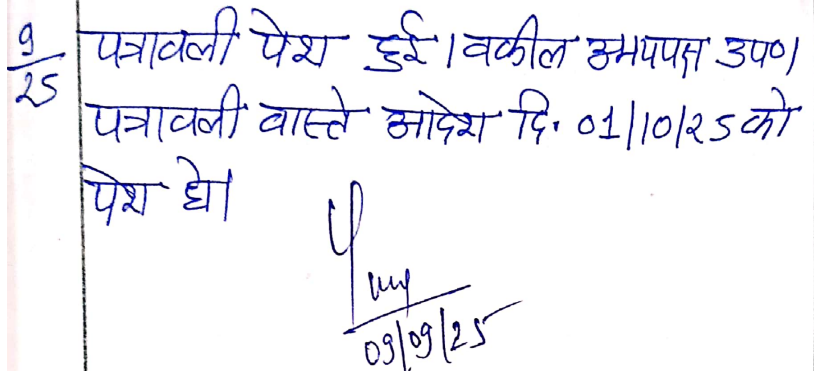 9/25 पत्रावली पेश हुई। वकील उभयपक्ष उप०।
पत्रावली वास्ते आदेश दि. 01/10/25 को
पेश हो।
09/09/25